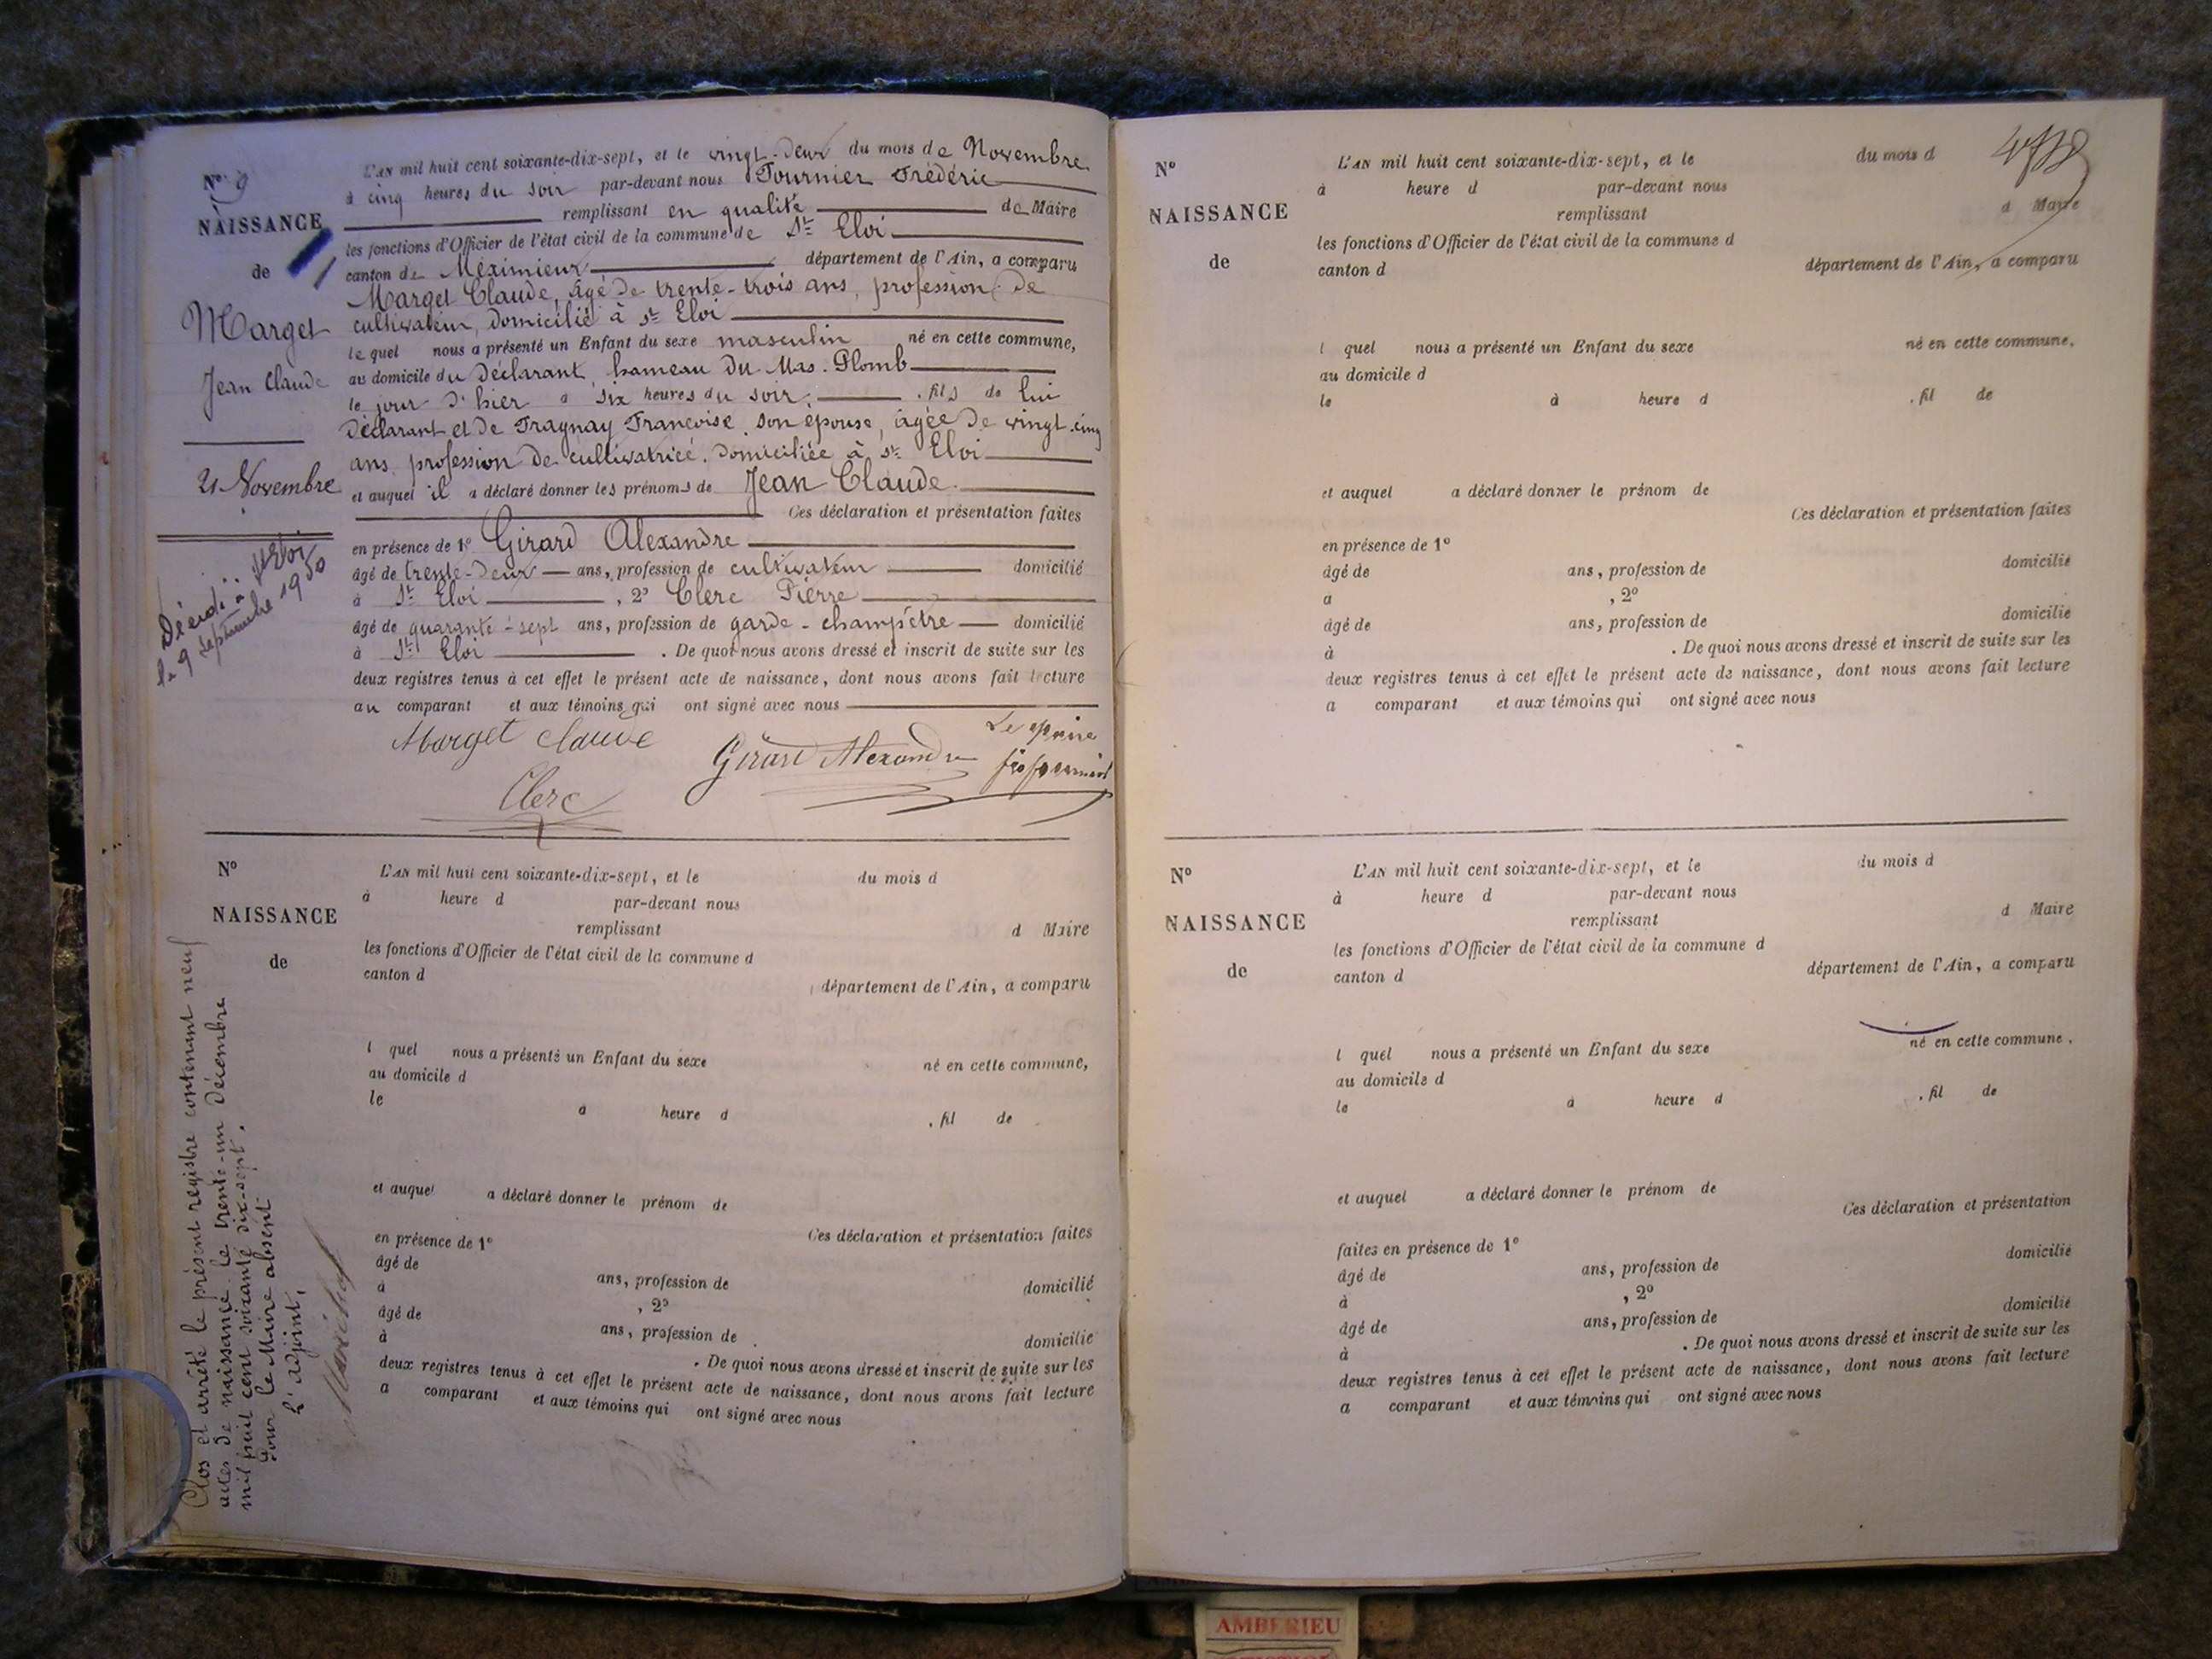 Nº 9
NAISSANCE
de
Marget
Jean Claude
21 Novembre
Décédé à St Eloi
le 9 septembre 1950
L'AN mil huit cent soixante-dix-sept, et le vingt-deux du mois de Novembre
à cinq heures du soir par-devant nous Fournier Frédéric
remplissant en qualité de Maire
les fonctions d'Officier de l'état civil de la commune de St Eloi
canton de Meximieux département de l'Ain, a comparu
Marget Claude, âgé de trente-trois ans, profession de
cultivateur, domicilié à St Eloi
lequel nous a présenté un Enfant du sexe masculin né en cette commune,
au domicile du Déclarant, hameau du Mas-Plomb
le jour d'hier à six heures du soir, fils de lui
Déclarant et de Tragnay Françoise son épouse, âgée de vingt-cinq
ans, profession de cultivatrice, domiciliée à St Eloi
et auquel il a déclaré donner les prénoms de Jean Claude.
Ces déclaration et présentation faites
en présence de 1º Girard Alexandre
âgé de trente-deux ans, profession de cultivateur domicilié
à St Eloi, 2º Clerc Pierre
âgé de quarante-sept ans, profession de garde-champêtre domicilié
à St Eloi. De quoi nous avons dressé et inscrit de suite sur les
deux registres tenus à cet effet le présent acte de naissance, dont nous avons fait lecture
au comparant et aux témoins qui ont signé avec nous
Marget Claude Girard Alexandre Le Maire
Clerc
Nº
NAISSANCE
de
L'AN mil huit cent soixante-dix-sept, et le du mois d
à heure d par-devant nous
remplissant d Maire
les fonctions d'Officier de l'état civil de la commune d
canton d département de l'Ain, a comparu
l quel nous a présenté un Enfant du sexe né en cette commune,
au domicile d
le à heure d . fil de
et auquel a déclaré donner le prénom de
Ces déclaration et présentation faites
en présence de 1º
âgé de ans, profession de domicilié
à , 2º
âgé de ans, profession de domicilié
à . De quoi nous avons dressé et inscrit de suite sur les
deux registres tenus à cet effet le présent acte de naissance, dont nous avons fait lecture
a comparant et aux témoins qui ont signé avec nous
Clos et arrêté le présent registre contenant neuf
actes de naissance le trente-un Décembre
mil huit cent soixante dix-sept.
Pour le Maire absent
L'adjoint,
Nº
NAISSANCE
de
L'AN mil huit cent soixante-dix-sept, et le du mois d
à heure d par-devant nous
remplissant d Maire
les fonctions d'Officier de l'état civil de la commune d
canton d département de l'Ain, a comparu
l quel nous a présenté un Enfant du sexe né en cette commune,
au domicile d
le à heure d . fil de
et auquel a déclaré donner le prénom de
Ces déclaration et présentation faites
en présence de 1º
âgé de ans, profession de domicilié
à , 2º
âgé de ans, profession de domicilié
à . De quoi nous avons dressé et inscrit de suite sur les
deux registres tenus à cet effet le présent acte de naissance, dont nous avons fait lecture
a comparant et aux témoins qui ont signé avec nous
Nº
NAISSANCE
de
L'AN mil huit cent soixante-dix-sept, et le du mois d
à heure d par-devant nous
remplissant d Maire
les fonctions d'Officier de l'état civil de la commune d
canton d département de l'Ain, a comparu
l quel nous a présenté un Enfant du sexe né en cette commune,
au domicile d
le à heure d . fil de
et auquel a déclaré donner le prénom de
Ces déclaration et présentation
faites en présence de 1º
âgé de ans, profession de domicilié
à , 2º
âgé de ans, profession de domicilié
à . De quoi nous avons dressé et inscrit de suite sur les
deux registres tenus à cet effet le présent acte de naissance, dont nous avons fait lecture
a comparant et aux témoins qui ont signé avec nous
AMBERIEU